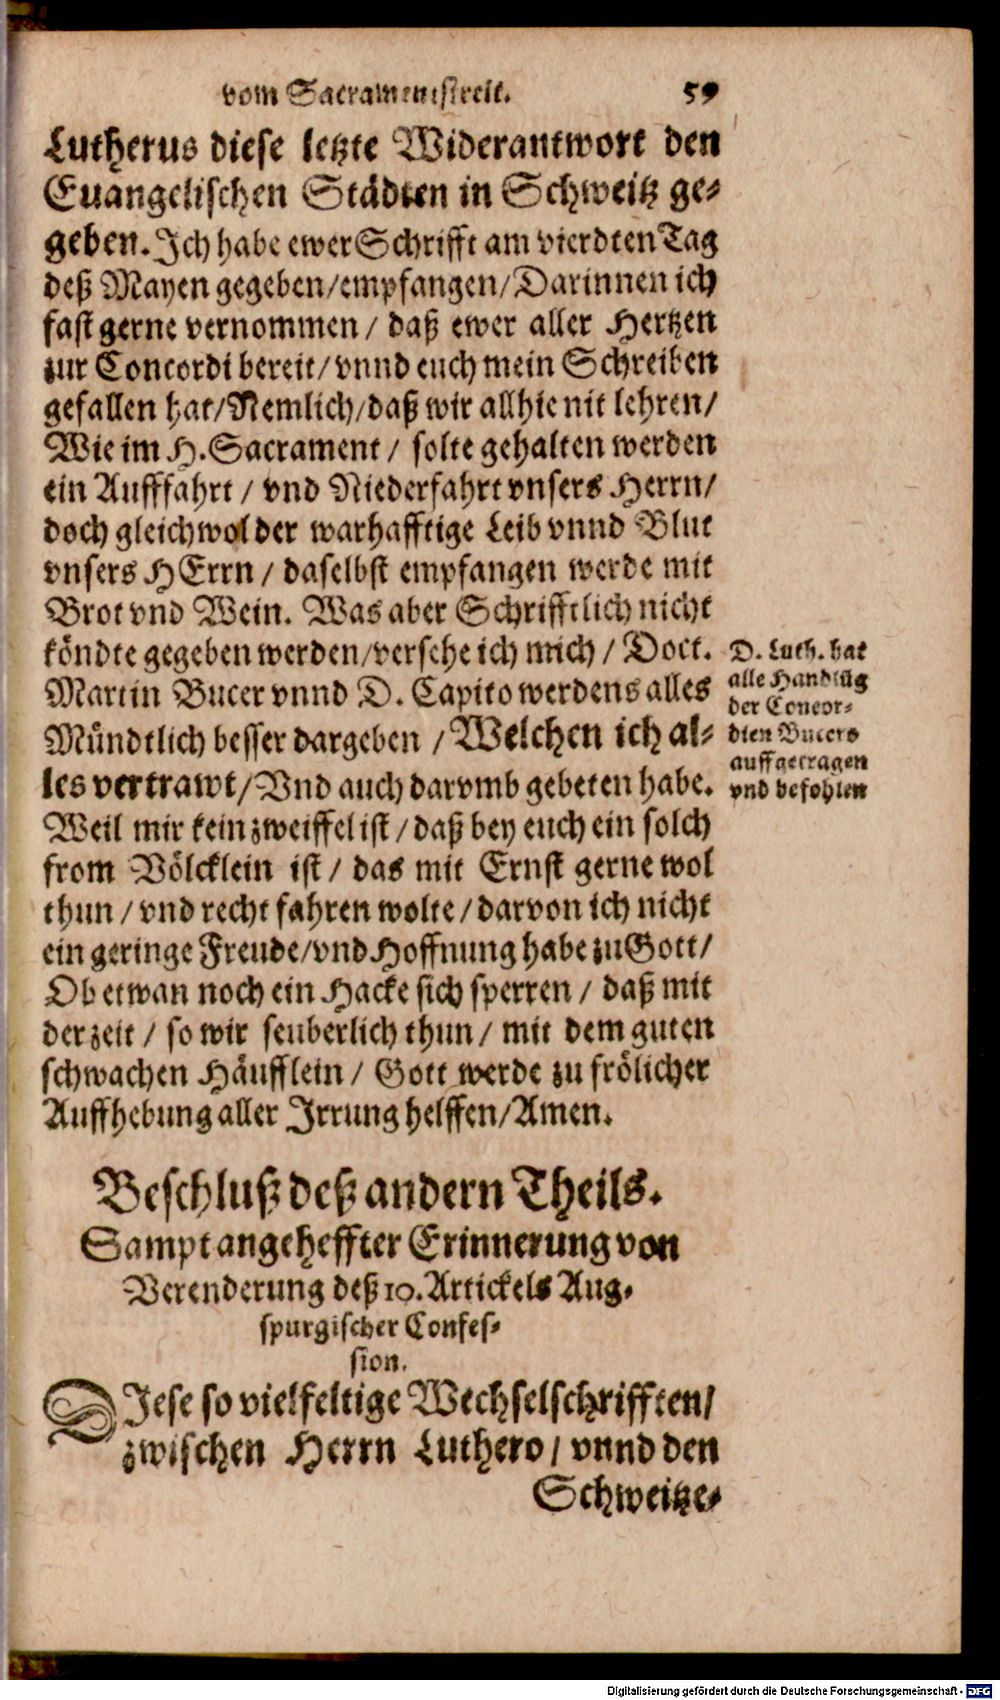 vom Sacramentstreit. 59
Lutherus diese letzte Widerantwort den
Euangelischen Städten in Schweitz ge-
geben. Ich habe ewer Schrifft am vierdten Tag
deß Mayen gegeben/empfangen/Darinnen ich
fast gerne vernommen/ daß ewer aller Hertzen
zur Concordi bereit/ vnnd euch mein Schreiben
gefallen hat/Nemlich/daß wir allhie nit lehren/
Wie im H. Sacrament/ solte gehalten werden
ein Aufffahrt/ vnd Niederfahrt vnsers Herrn/
doch gleichwol der warhafftige Leib vnnd Blut
vnsers HErrn/ daselbst empfangen werde mit
Brot vnd Wein. Was aber Schrifftlich nicht
köndte gegeben werden/versehe ich mich/ Doct.
Martin Bucer vnnd D. Capito werdens alles
Mündtlich besser dargeben/ Welchen ich al-
les vertrawt/ Vnd auch darvmb gebeten habe.
Weil mir kein zweiffel ist/ daß bey euch ein solch
from Völcklein ist/ das mit Ernst gerne wol
thun/ vnd recht fahren wolte/ darvon ich nicht
ein geringe Freude/vnd Hoffnung habe zu Gott/
Ob etwan noch ein Hacke sich sperren/ daß mit
der zeit/ so wir seuberlich thun/ mit dem guten
schwachen Häufflein/ Gott werde zu frölicher
Auffhebung aller Irrung helffen/Amen.
D. Luth. hat
alle Handlũg
der Concor-
dien Bucero
auffgetragen
vnd befohlen
Beschluß deß andern Theils.
Sampt angeheffter Erinnerung von
Verenderung deß 10. Artickels Aug-
spurgischer Confes-
sion.
DIese so vielfeltige Wechselschrifften/
zwischen Herrn Luthero/ vnnd den
Schweitze-
Digitalisierung gefördert durch die Deutsche Forschungsgemeinschaft - DFG